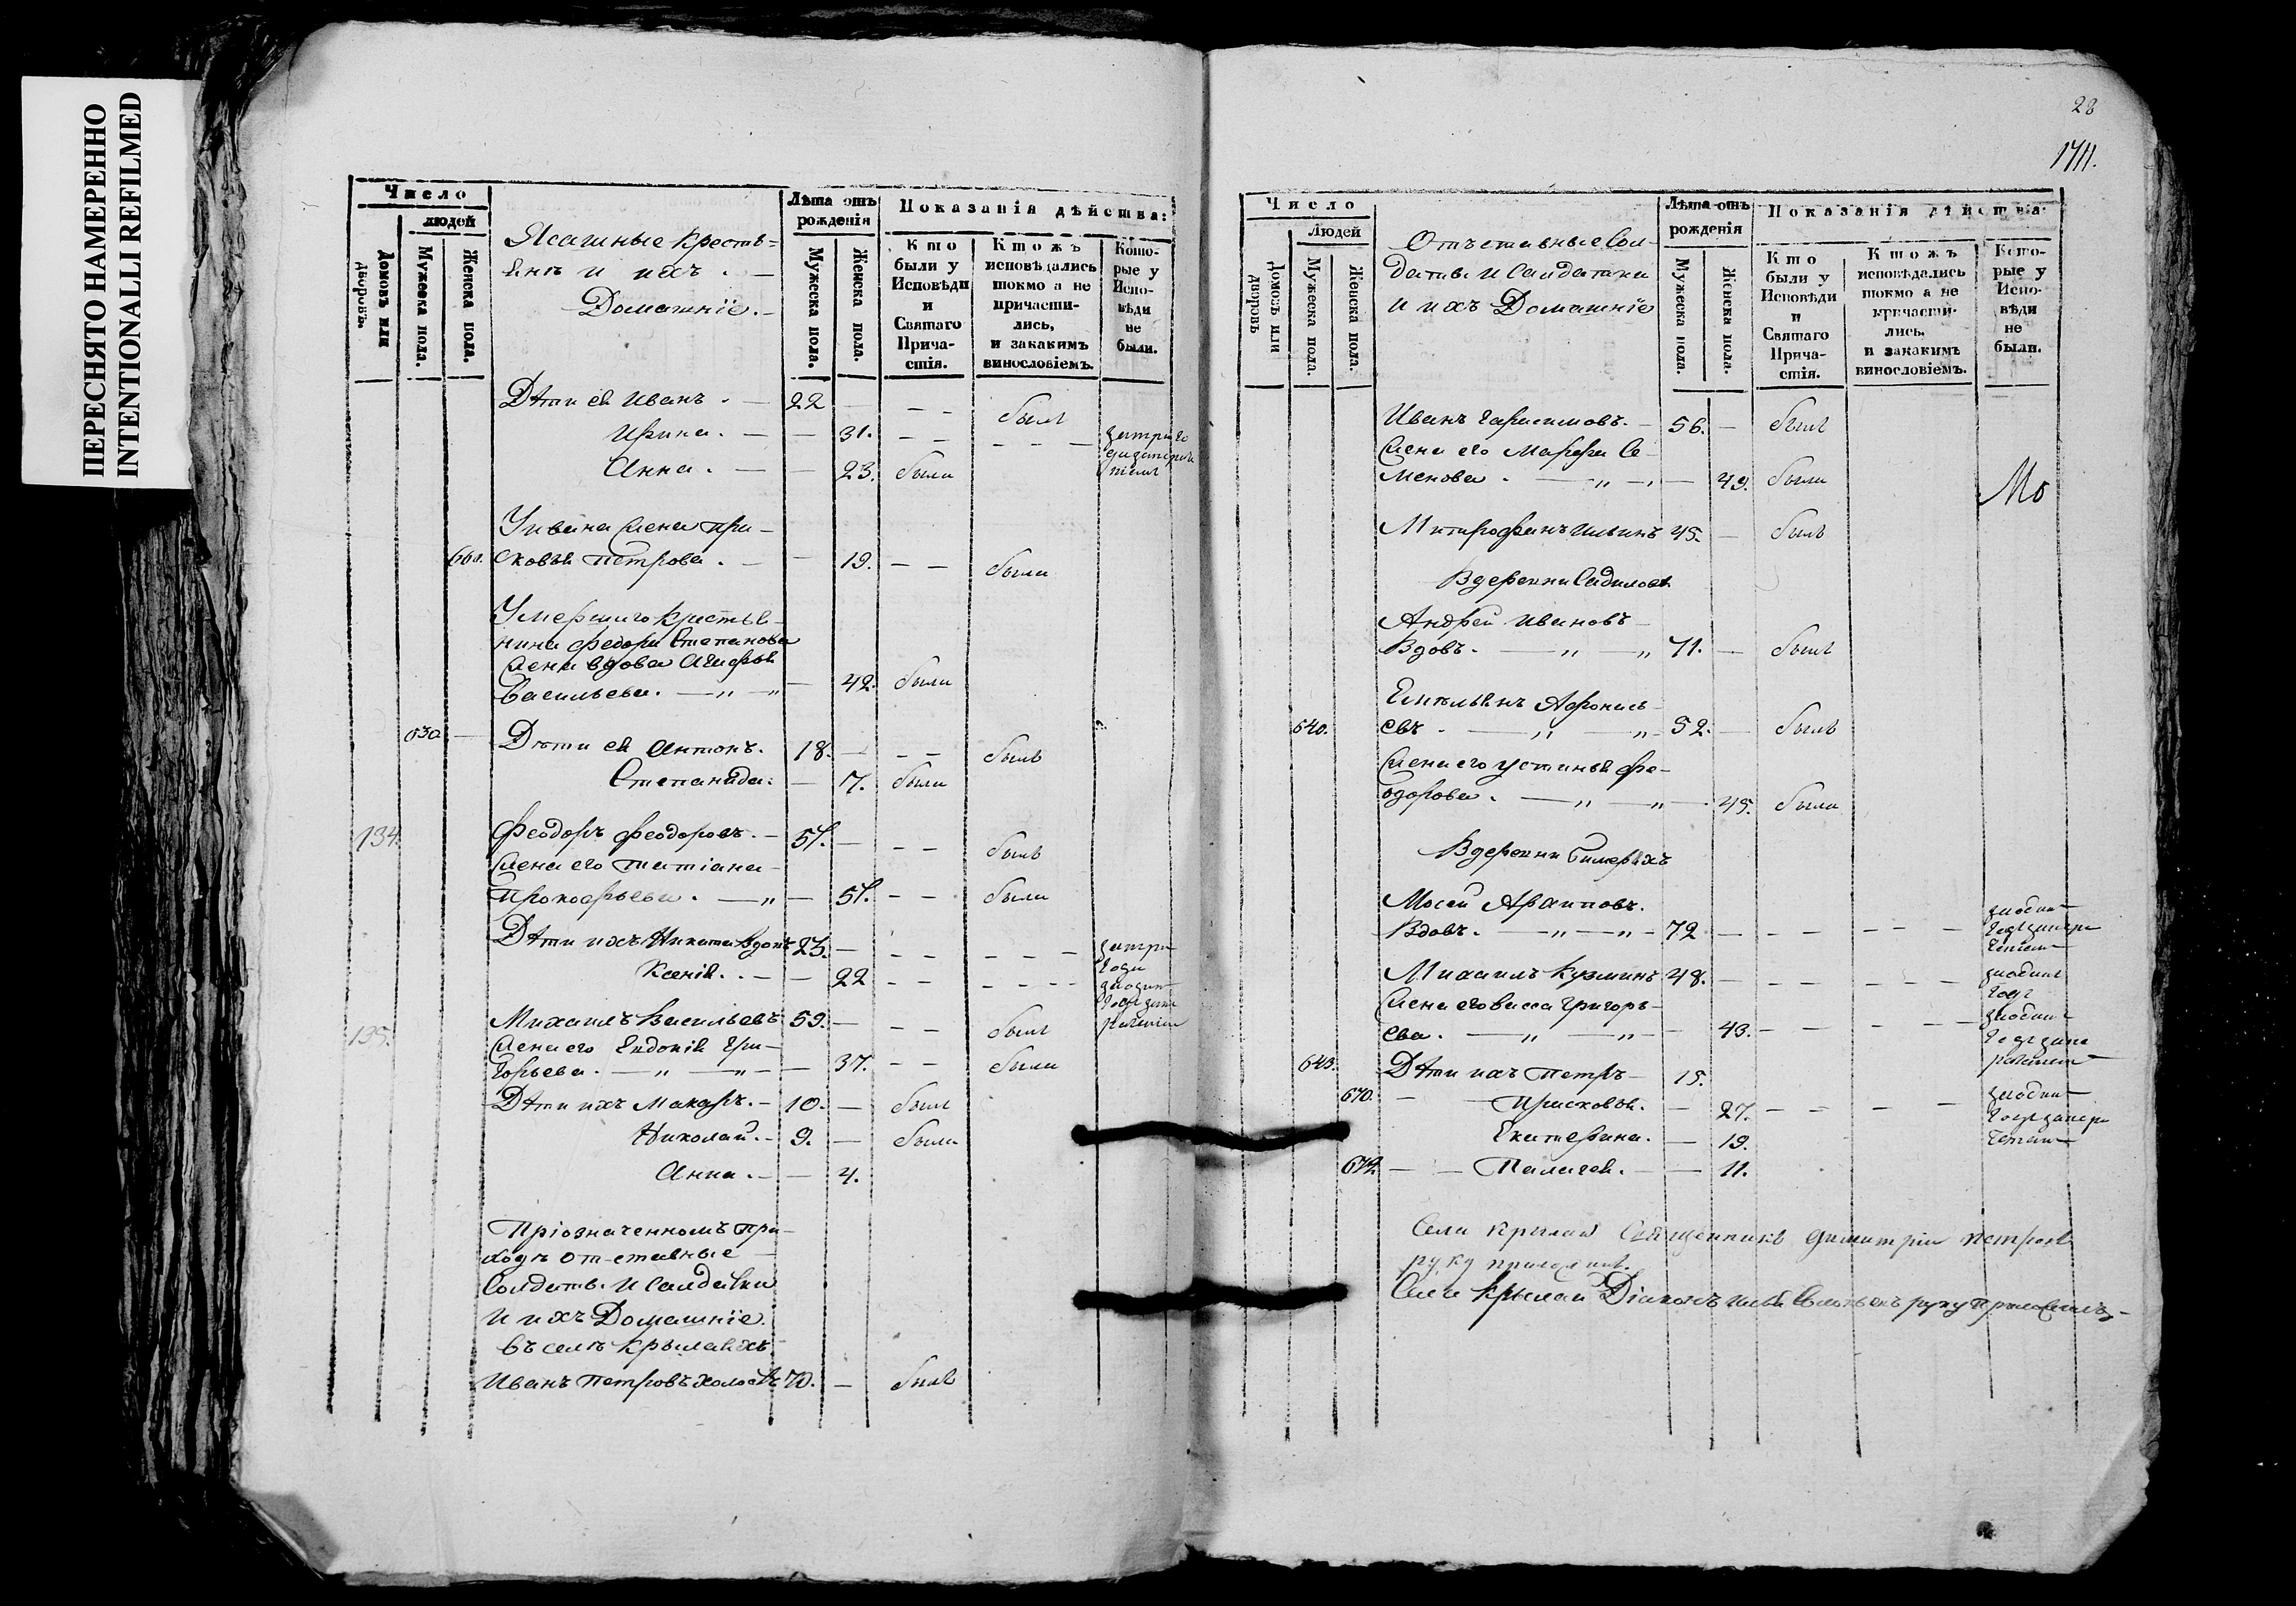 ПЕРЕСНЯТО НАМЕРЕННО
INTENTIONALLI REFILMED
Число
людей
Домовъ или дворовъ.
Мужеска пола.
Женска пола.
Ясашные Крестья-
не и ихъ
Домашніе.
Лѣта отъ рожденія
Мужеска пола.
Женска пола.
Показанія дѣйства:
Кто были у Исповѣди и Святаго Причастія.
Ктожъ исповѣдались токмо а не причасти-лись, и закакимъ винословіемъ.
Кото-рые у Испо-вѣди не были.
Дѣти ея Иванъ. — 22 — — — былъ
Ирина. — — 31. — — — — —
Анна. — — 23. были
У Ивана жена Пра-
668. сковья Петрова. — — 19. — — были
Умершаго Крестья-
нина Федора Степанова
жена вдова
Васильева. — „ — „ — 42. были
630 — Дѣти ея Антонъ. 18. — — — былъ
Степанида. — 7. были
134. Феодоръ Феодоровъ. — 57. — — — былъ
жена его Татіана
Прокофьева. — „ — 57. — — были
Дѣти ихъ Никита вдовъ 25. — — — — — —
Ксенія. — — 22 — — — — — —
135. Михаилъ Васильевъ 59. — — — былъ
жена его Евдокія Гри-
горьева. — „ — „ — — 37. — — были
Дѣти ихъ Макаръ. — 10. — былъ
Николай. — 9. — былъ
Анна. — — 4.
Пріозначенномъ при-
ходѣ отставные
Солдаты. и салдатки
и ихъ Домашніе.
въ селѣ Крылаяхъ
Иванъ Петровъ холостъ 70. — былъ
28
1711.
Число
Людей
Домовъ или дворовъ
Мужеска пола.
Женска пола.
Отъставные Сол-
даты. и Салдатки
и ихъ Домашніе
Лѣта отъ рожденія
Мужеска пола.
Женска пола.
Показанія дѣйства:
Кто были у Исповѣди и Святаго Прича-стія.
Ктожъ исповѣдались токмо а не причасти-лись, и закакимъ винословіемъ.
Кото-рые у Испо-вѣди не были.
Иванъ Гарасимовъ. — 56. — былъ
жена его Марфа Се-
менова. — „ — — 49. были
Мо
Митрофанъ Ильинъ 45. — былъ
В деревни
Андрей Ивановъ
Вдовъ. — „ — „ 71. — былъ
Емельянъ Афонась-
640. евъ. — „ — „ 52. — былъ
жена его Устинья Фе-
одорова. — „ — „ — 45. были
В деревни
Мосей Архиповъ.
Вдовъ. — „ — „ — 72 — — — — —
Михаилъ Кузминъ 48. — — — — —
жена его Васса Григорь-
ева. — „ — „ — 43. — — — —
643. Дѣти ихъ Петръ — 15.
670. — — Прасковья. — 27. — — — —
Екатерина. — 19.
672. — — Палагея. — — 11.
Села Крылай Священникъ Димитріи Петровъ
руку приложилъ.
Села Крылай Діаконъ руку приложилъ